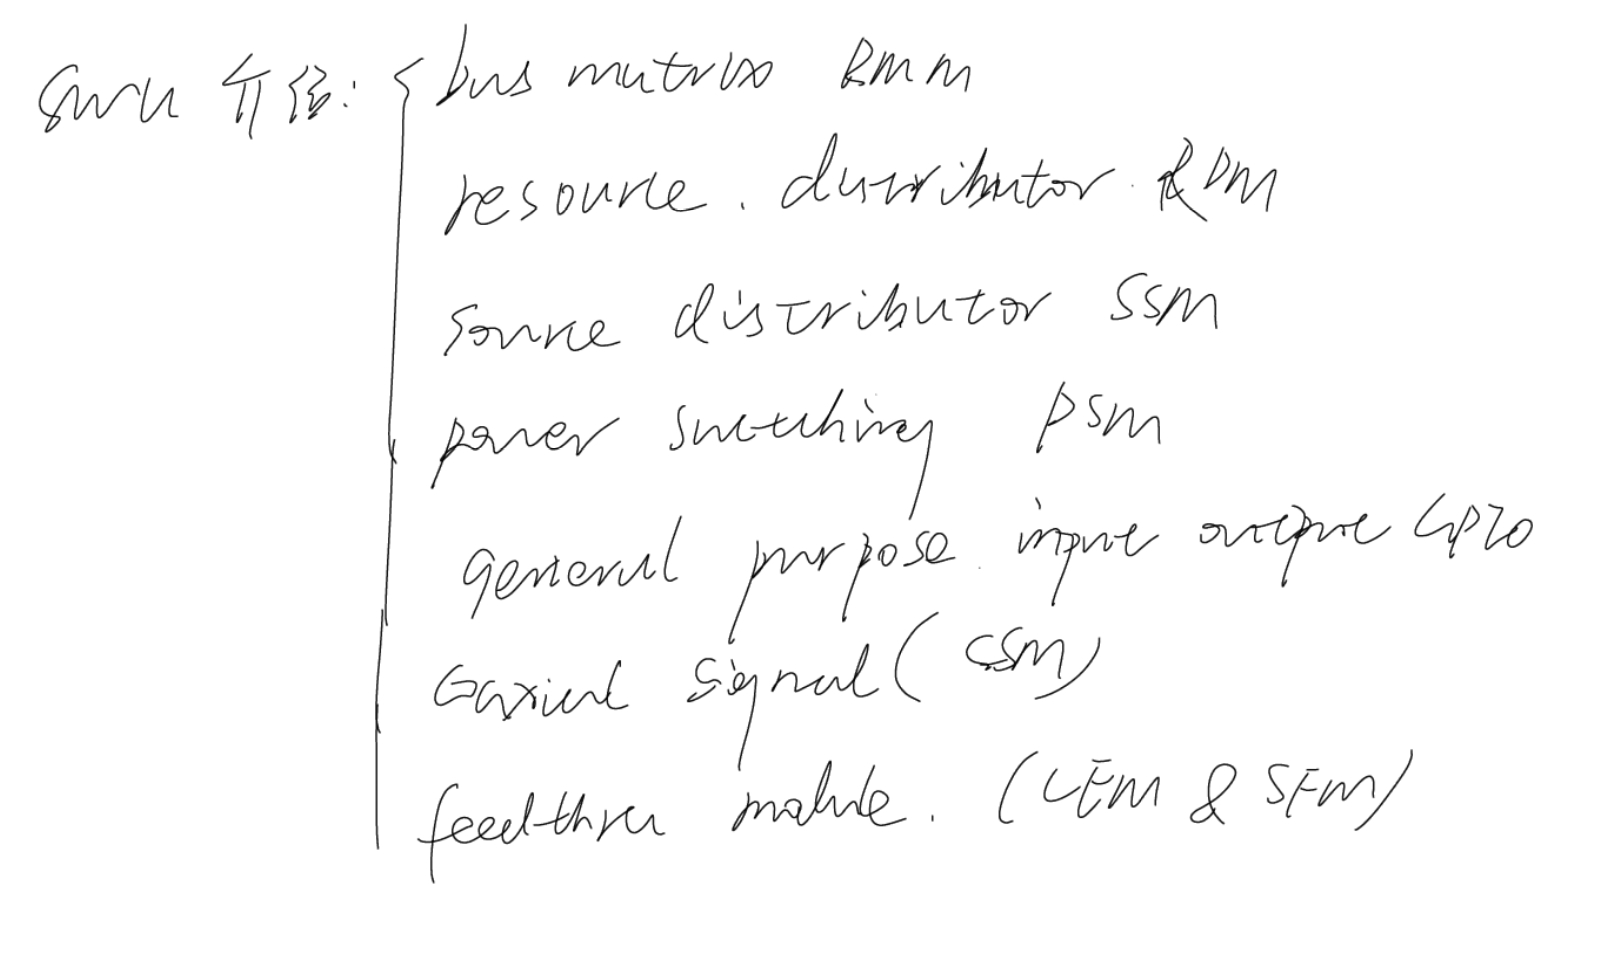 SWU 介绍: { bus matrix BMM
resource. distributor. RDM
source distributor SSM
power switching PSM
general purpose. input output GPIO
coaxial signal (CSM)
feedthru module. (CFM & SFM)